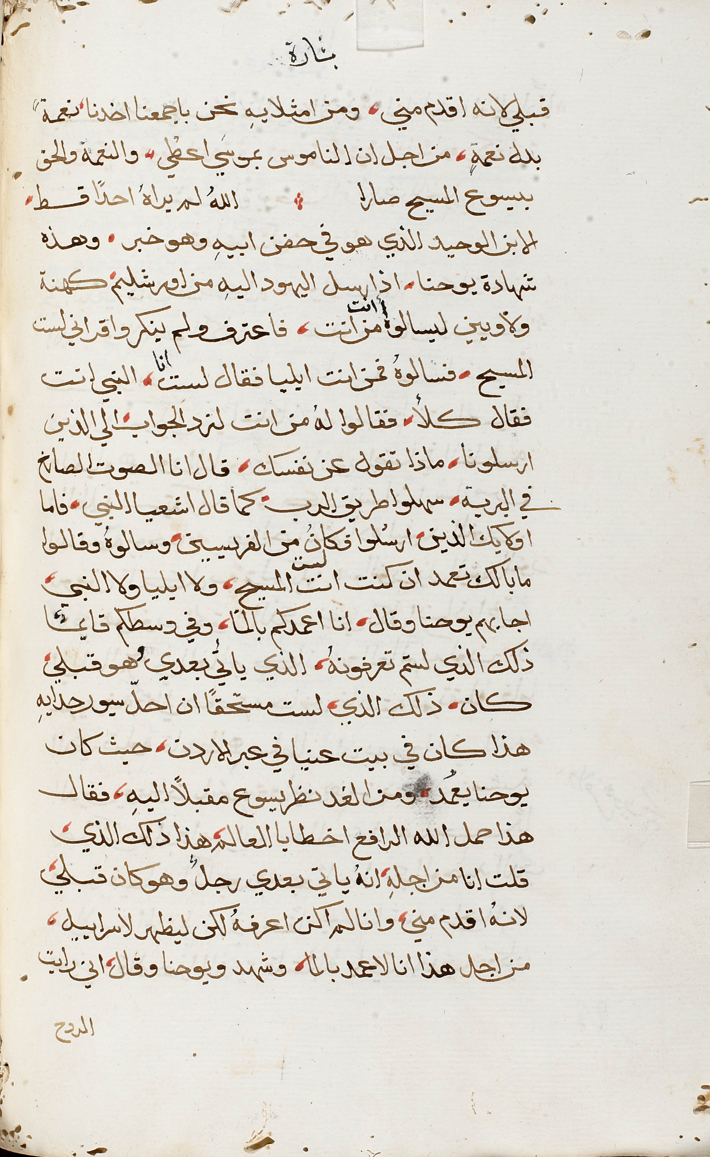 بشارة
قبلي لانه اقدم مني، ومن امتلايهِ نحن باجمعنا اخدنا، نعمة
بدل نعمةٍ، من اجل ان الناموس بموسَي اعطي، والنعمة والحق
بيسوع المسيح صارا الله لم يراهُ احدًا قط،
الابن الوحيد الذي هو في حضن ابيهِ وهو خبر، وهذه
شهادة يوحنا، اذ ارسل اليهود اليهِ من اورشليم كهنة
ولاويين ليسالوهُ من انت انت، فاعترف ولم ينكر واقر اني لست
المسيح، فسالوهُ فمن انت ايليا فقال لست انا، النبي انت
فقال كلاَّ، فقالوا لهُ من انت لنرد الجواب الي الذين
ارسلونا، ماذا تقول عن نفسك، قال انا الصوت الصارخ
في البرية، سهلوا طريق الرب، كما قال اشعيا النبي، فاما
اولايك الذين ارسُلوا فكانُ من الفريسيين، وسالوهُ وقالوا
ما بالك تعمد ان كنت انت لست المسيح، ولا ايليا ولا النبي،
اجابهم يوحنا وقال، انا اعمدكم بالما، وفي وسطكم قايمًا
ذلك الذي لستم تعرفونهُ، الذي ياتي بعدي، هو قبلي،
كان، ذلك الذي، لست مستحقًا ان احلّ سيور حدايهِ
هذا كان في بيت عنيا في عبر الاردن، حيث كان
يوحنا يعمُد، ومن الغد نظر يسوع مقبلاً اليهِ، فقال
هذا حمل الله الرافع اخطايا العالم، هذا ذلك الذي،
قلت انا من اجلهِ، انهُ ياتي بعدي رجلٌ وهو كان قبلي،
لانهُ اقدم مني، وانا لم اكن اعرفهُ لكن ليظهر لاسراييل،
من اجل هذا انا لاعمد بالما، وشهد ويوحنا وقال، اني رايت
الروح